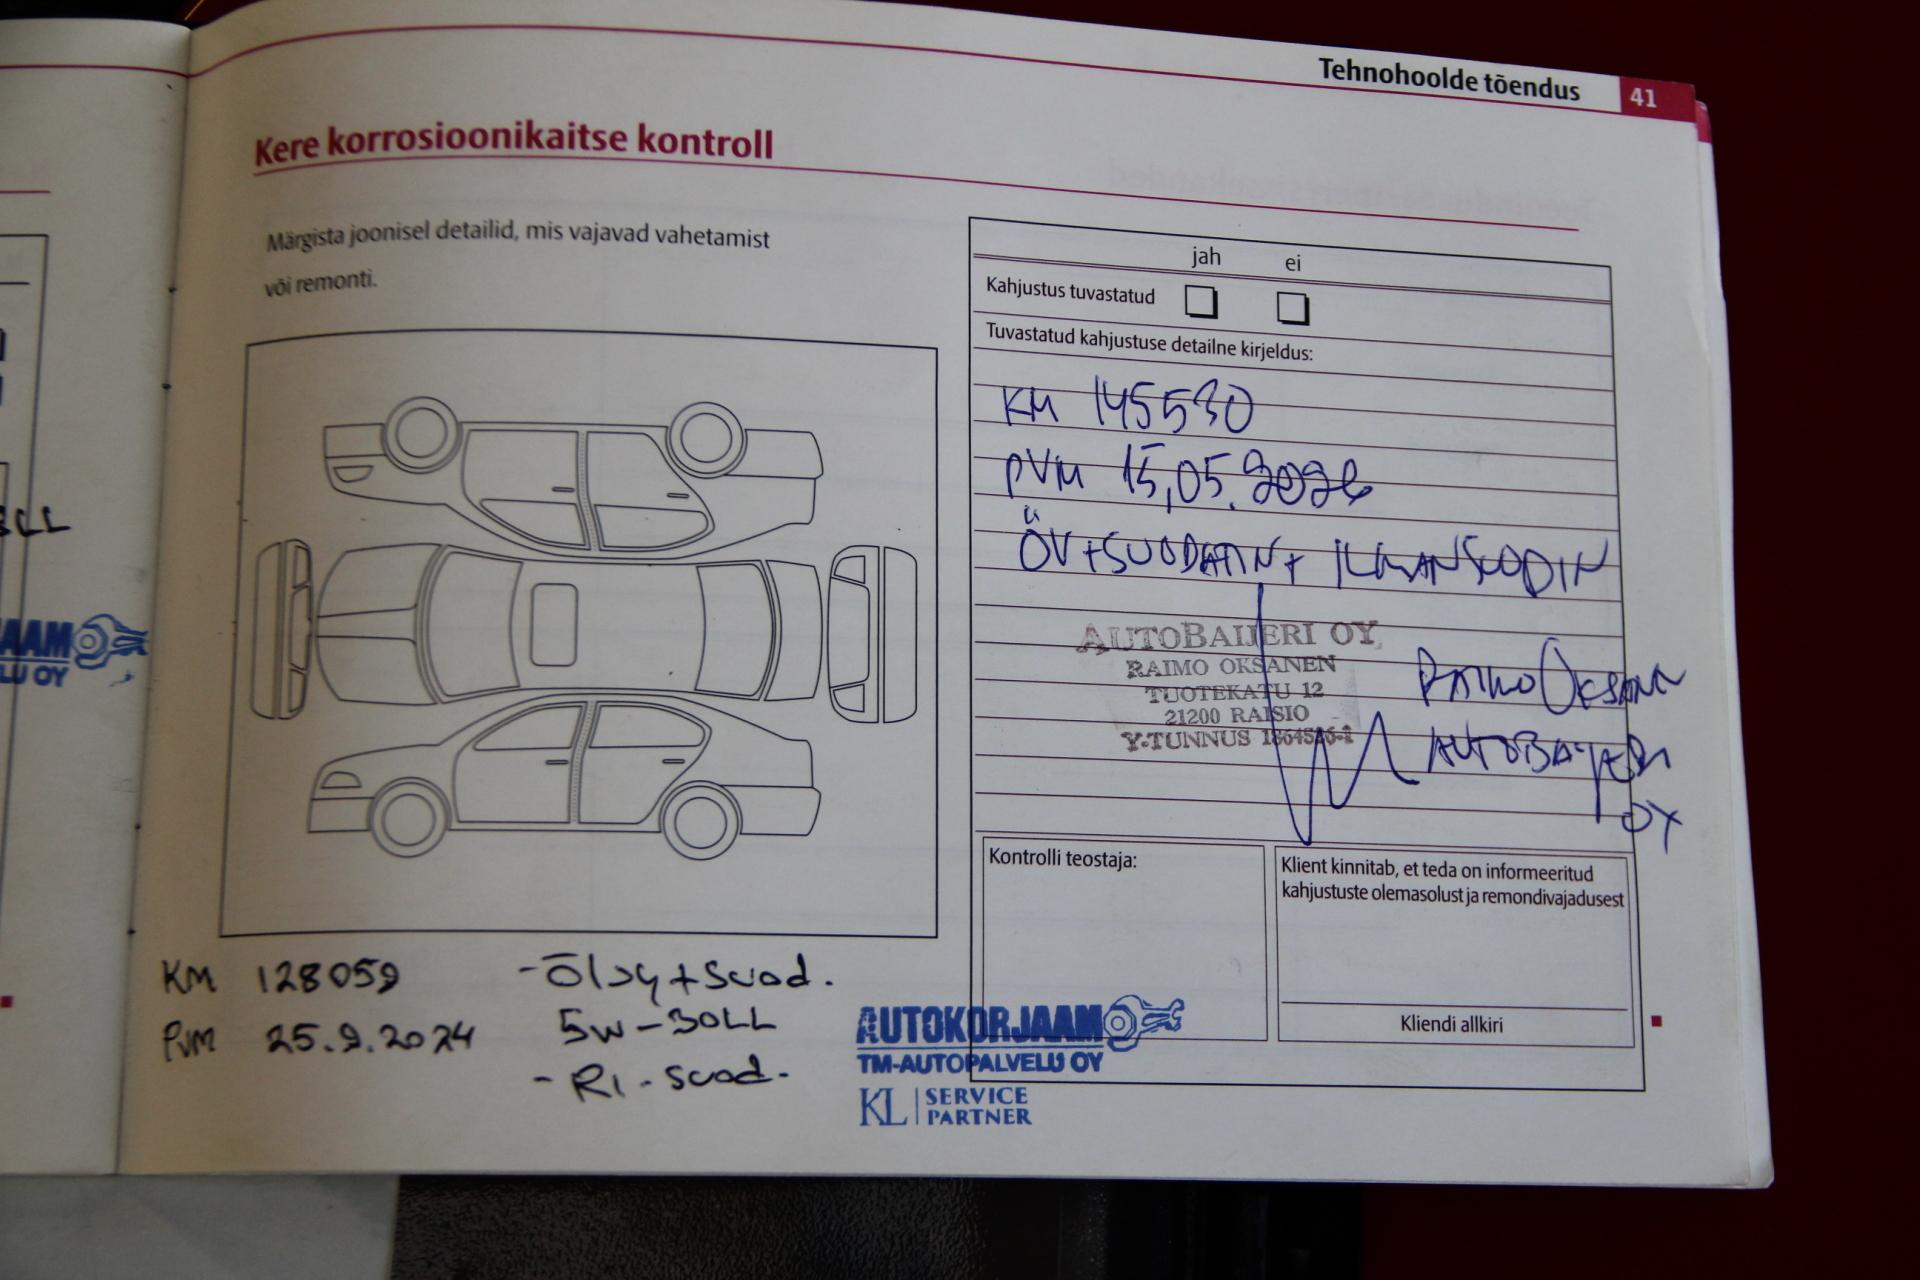 Tehnohoolde tõendus 41
Kere korrosioonikaitse kontroll
Märgista joonisel detailid, mis vajavad vahetamist
või remonti.
jah ei
Kahjustus tuvastatud
Tuvastatud kahjustuse detailne kirjeldus:
KM 145530
PVM 15,05.2026
ÖV+SUODATIN+ ILMANSUODIN
AUTOBAIJERI OY
RAIMO OKSANEN
TUOTEKATU 12
21200 RAISIO
Y-TUNNUS
RAIMO OKSANEN
AUTOBAIJERI
OY
Kontrolli teostaja:
Klient kinnitab, et teda on informeeritud
kahjustuste olemasolust ja remondivajadusest
Kliendi allkiri
KM 128059
PVM 25.9.2024
-Öljy+suod.
5W-30LL
- RI-suod.
AUTOKORJAAMO
TM-AUTOPALVELU OY
KL SERVICE
PARTNER
3LL
AAM
LU OY